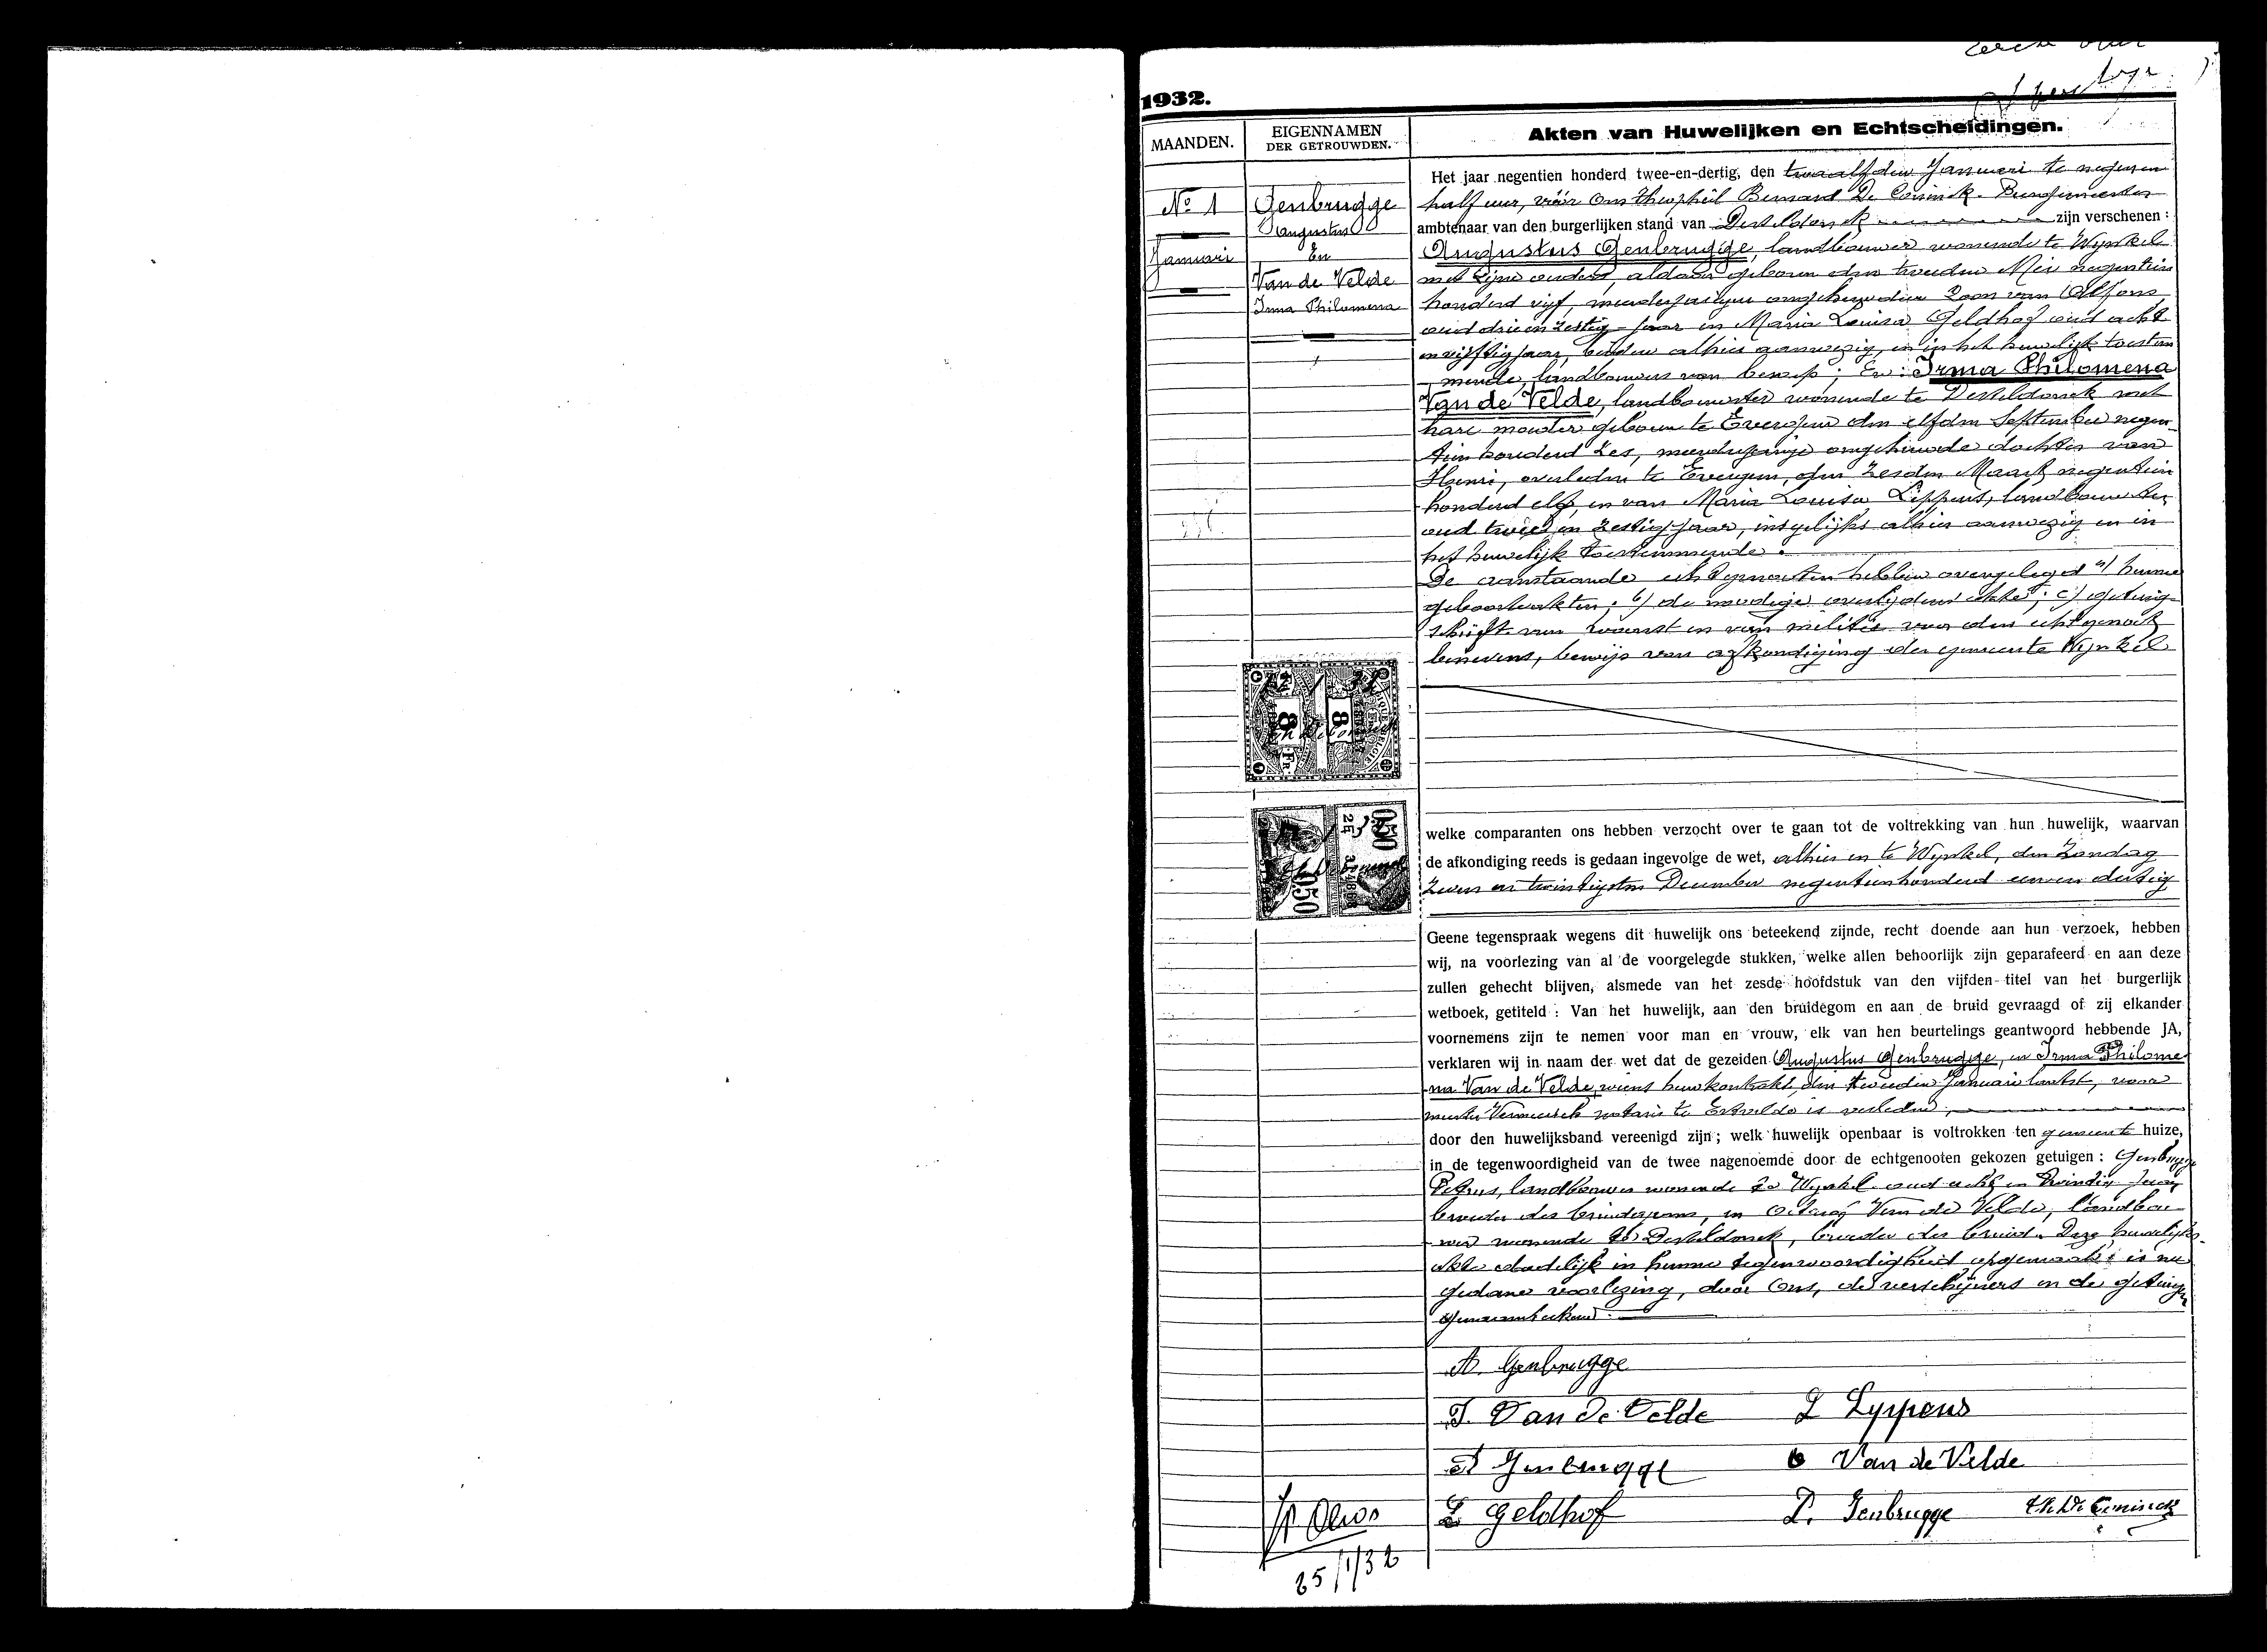 1932.
MAANDEN.
EIGENNAMEN
DER GETROUWDEN.
Akten van Huwelijken en Echtscheidingen.
No 1
Januari
Genbrugge
Augustus
En
Van de Velde
Irma Philomena
Het jaar negentien honderd twee-en-dertig, den twaalfden Januari te negen en
half uur, vóór Ons Theophiel Bernard De Coninck. Burgemeester
ambtenaar van den burgerlijken stand van Desteldonck zijn verschenen :
Augustus Genbrugge, landbouwer wonende te Wynkel
met zijne ouders, aldaar geboren den tweeden Mei negentien
honderd vijf, meerderjarigen ongehuwden Zoon van Alfons,
oud drie en zestig jaar en Maria Louisa Geldhof oud acht
en vijftig jaar, beiden alhier aanwezig, en in het huwelijk toestem
mende, landbouwers van beroep ; En : Irma Philomena
Van de Velde, landbouwster wonende te Desteldonck met
hare moeder geboren te Evergem den elfden September negen-
tien honderd zes, meerderjarige ongehuwde dochter van
Henri, overleden te Evergem, den zesden Maart negentien
honderd elf, en van Maria Louisa Lippens, landbouwster
oud twee en zestig jaar, insgelijks alhier aanwezig en in
het huwelijk toestemmende.
De aanstaande echtgenooten hebben overgelegd a) hunne
geboorteakten ; b) de noodige overlijdens akte ; c) getuig-
schrift van woonst en van militie voor den echtgenoot
benevens, bewijs van afkondiging der gemeente Wynkel
8
8
FR.
0.50
0.50
welke comparanten ons hebben verzocht over te gaan tot de voltrekking van hun huwelijk, waarvan
de afkondiging reeds is gedaan ingevolge de wet, alhier en te Wynkel, den Zondag
zeven en twintigsten December negentienhonderd een en dertig
Geene tegenspraak wegens dit huwelijk ons beteekend zijnde, recht doende aan hun verzoek, hebben
wij, na voorlezing van al de voorgelegde stukken, welke allen behoorlijk zijn geparafeerd en aan deze
zullen gehecht blijven, alsmede van het zesde hoofdstuk van den vijfden titel van het burgerlijk
wetboek, getiteld : Van het huwelijk, aan den bruidegom en aan de bruid gevraagd of zij elkander
voornemens zijn te nemen voor man en vrouw, elk van hen beurtelings geantwoord hebbende JA,
verklaren wij in naam der wet dat de gezeiden Augustus Genbrugge, en Irma Philome
na Van de Velde, wiens huwkontrakt, den tweeden Januari laatst, voor
meester notaris te Ertvelde is verleden,
door den huwelijksband vereenigd zijn ; welk huwelijk openbaar is voltrokken ten gemeente huize,
in de tegenwoordigheid van de twee nagenoemde door de echtgenooten gekozen getuigen : Genbrugge
Petrus, landbouwer wonende te Wynkel oud acht en twintig jaar
broeder des bruidegoms, en Octaaf Van de Velde, landbou
wer wonende te Desteldonck, broeder der bruid. Deze huwelijks-
akte dadelijk in hunne tegenwoordigheid opgemaakt is na
gedane voorlezing, door Ons, de verschijners en de getuigen
A. Genbrugge
I. Van de Velde
L Lyppens
A Genbrugge
O Van de Velde
L Geldhof
P. Genbrugge
Th. De Coninck
25/1/32